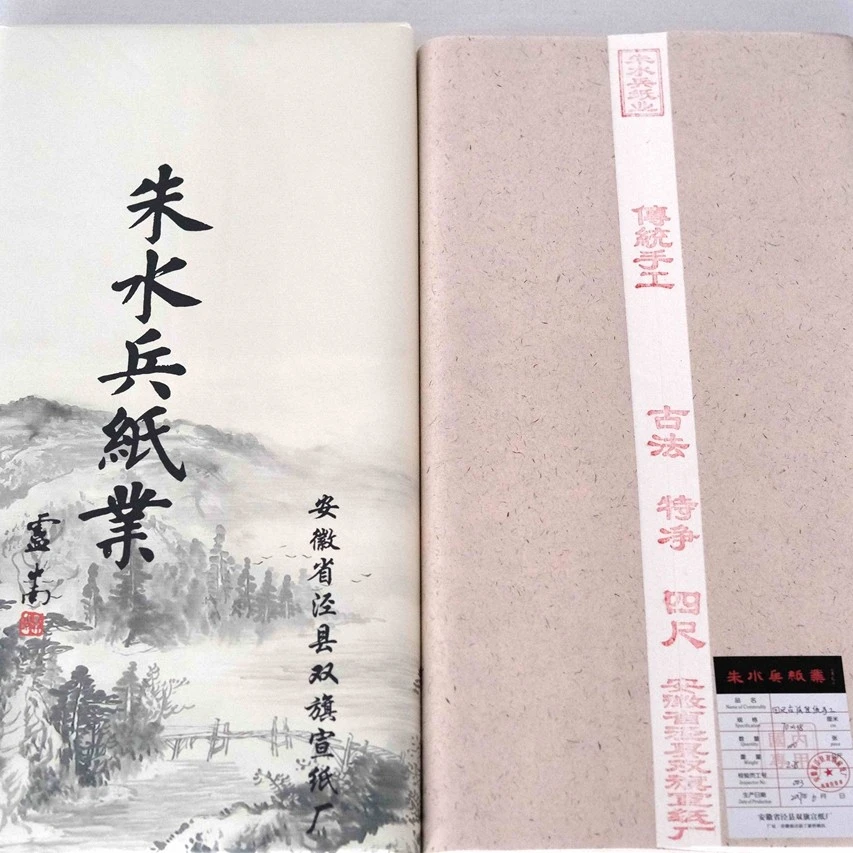 朱水兵紙業
安徽省泾县双旗宣纸厂
朱水兵纸业
傳統手工
古法 特净 四尺
安徽省泾县双旗宣纸厂
朱水兵紙業
品 名
Name of Commodity
规 格
Specification
厘米
cm
数 量
Quantity
张
piece
重 量
Weight
检验员工号
Inspector No.
生产日期
Date of Production
年 月 日
安徽省泾县双旗宣纸厂